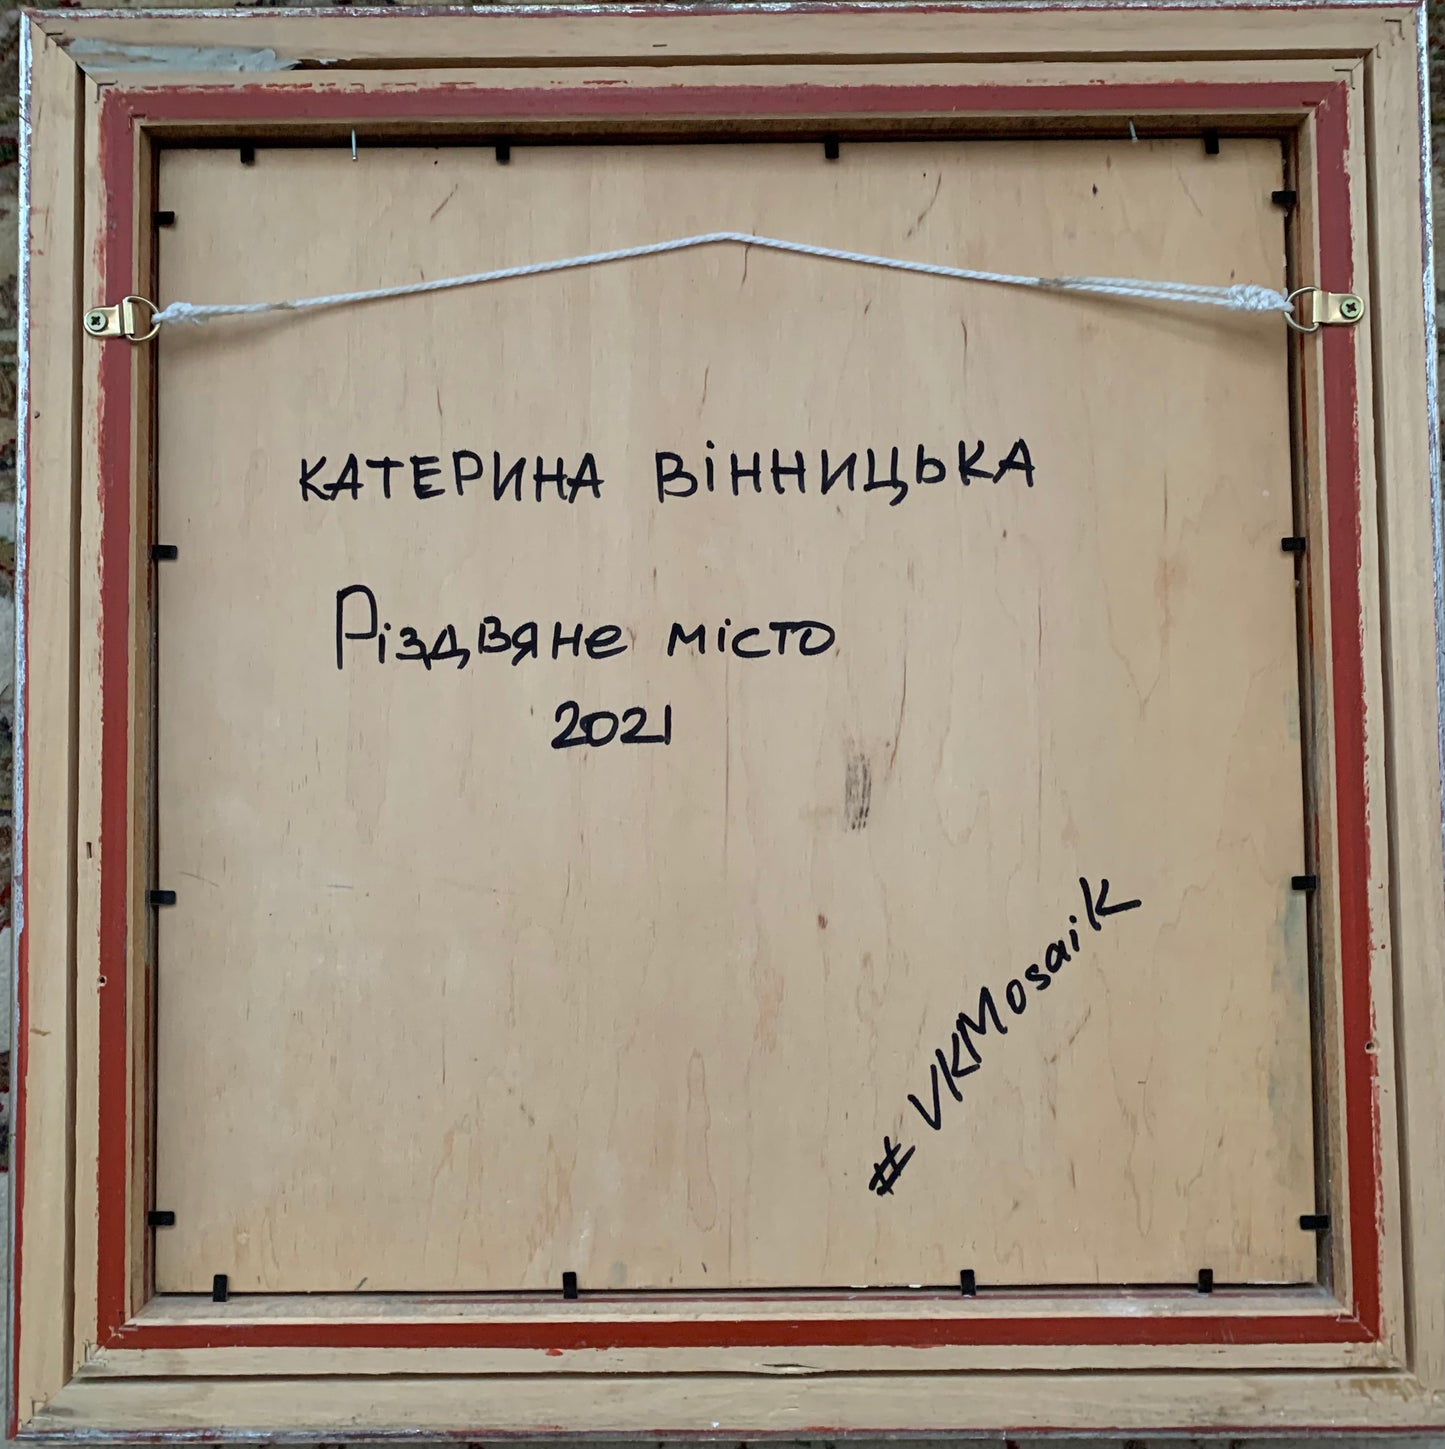 КАТЕРИНА ВІННИЦЬКА
Різдвяне місто
2021
# VKMosaiK